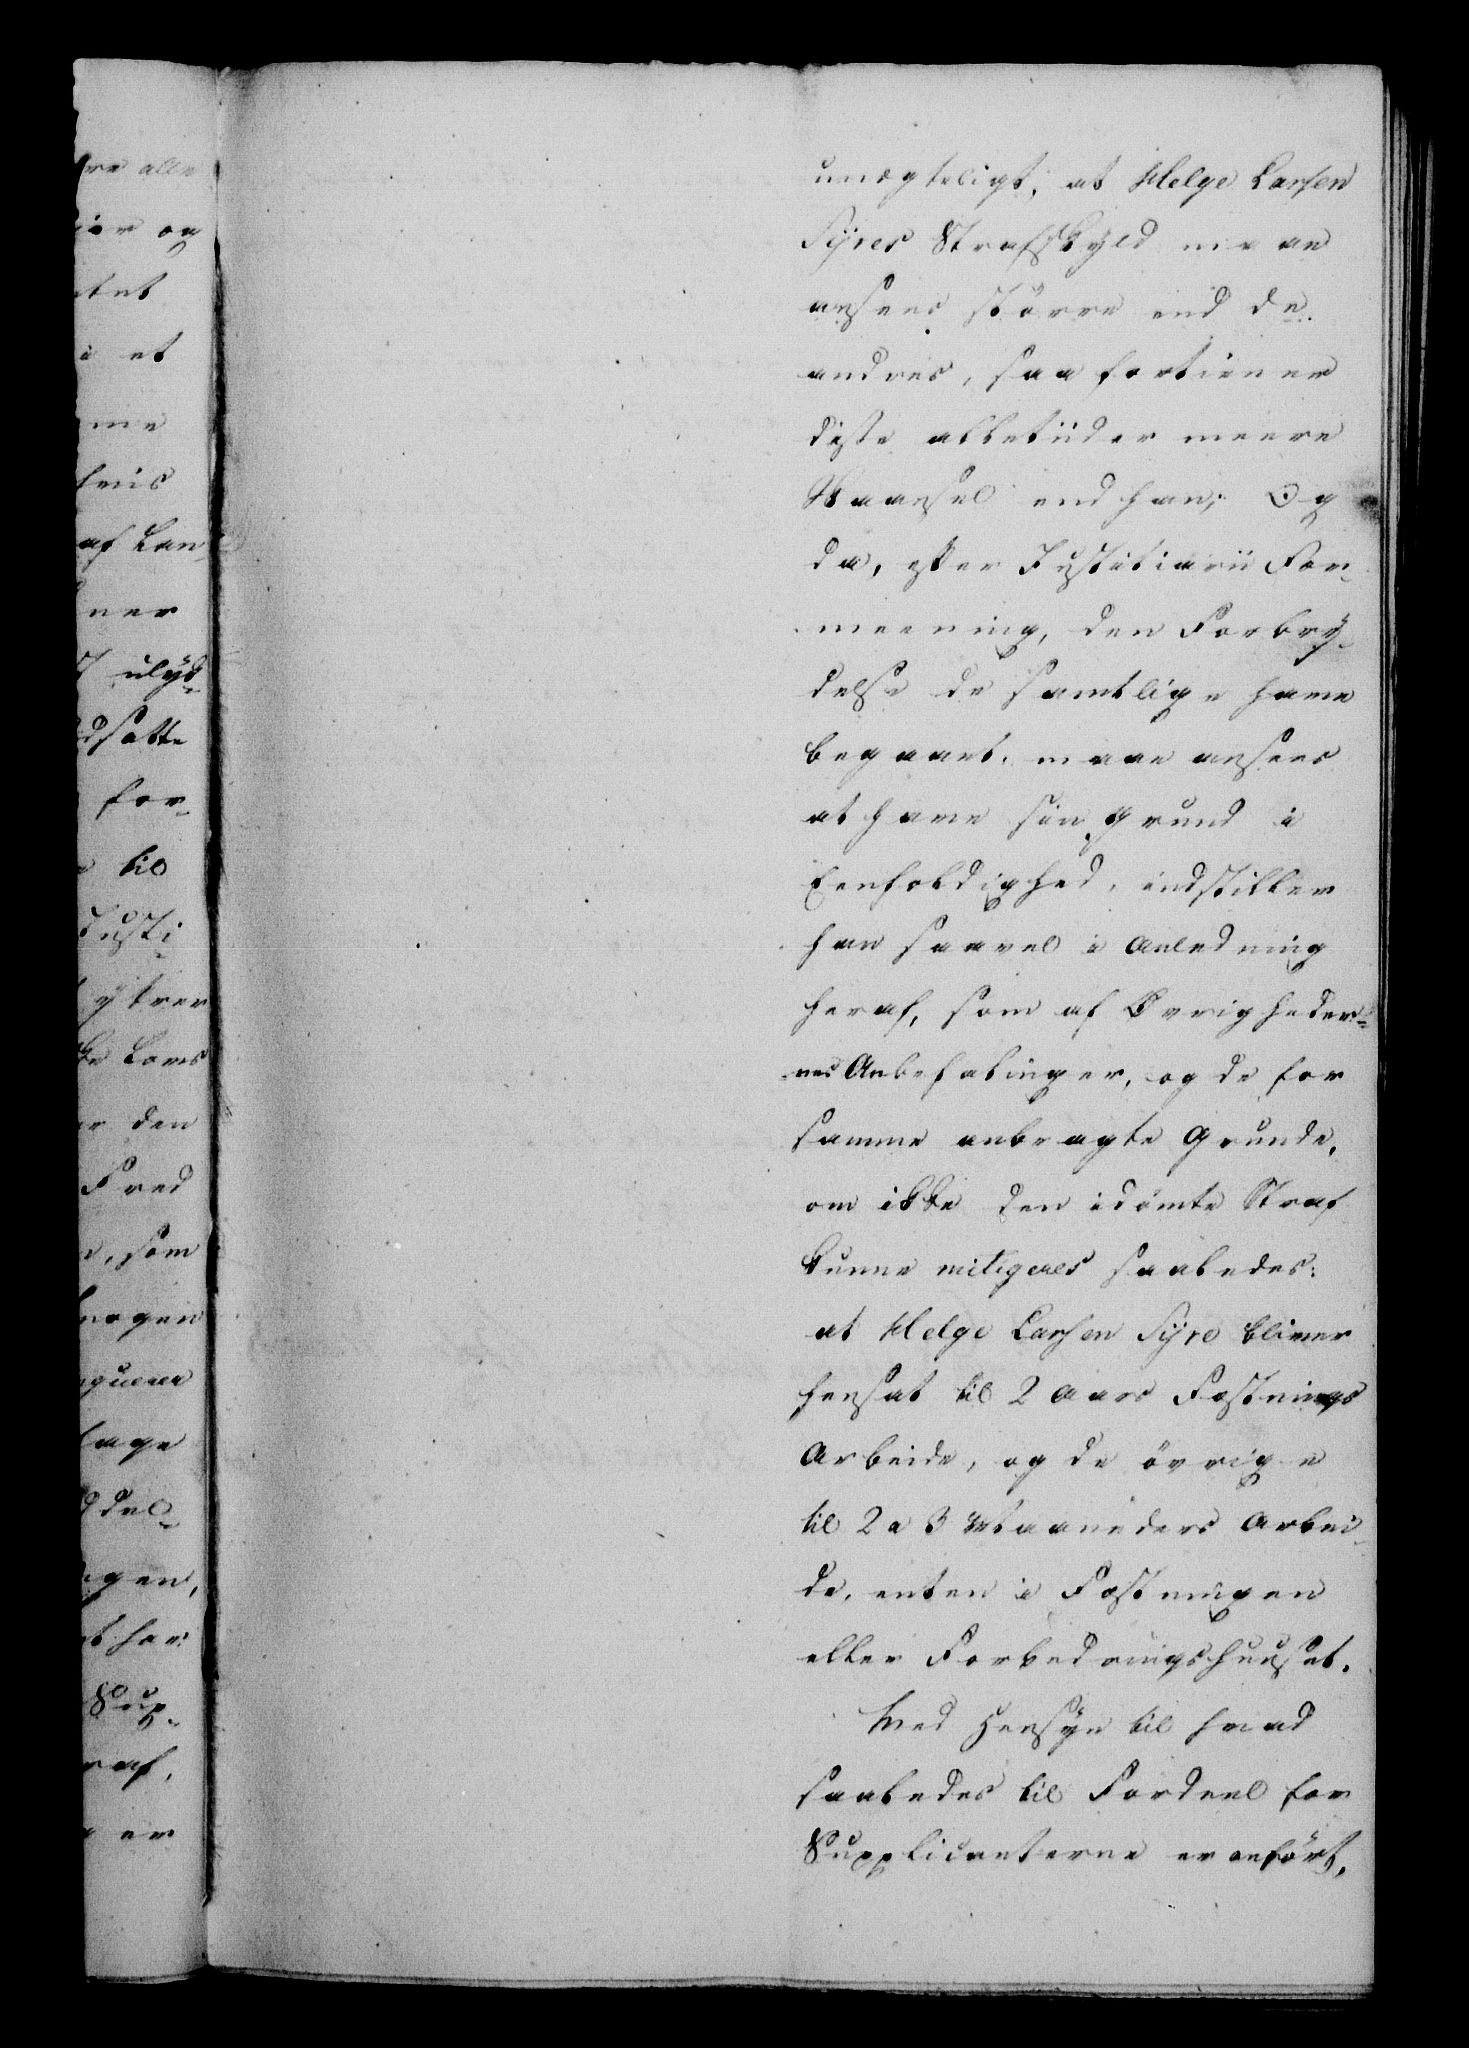 re alle
og
et
me
af Lan-
ner
ulyd-
dsatte
for-
til
Justi-
ytrer
Lovs
den
Fred
som
nogen
del-
gen,
Sup-
raf,
er
unægteligt, at Helge Larsen
Syres Strafskyld maae
ansees större end de
andres, saa fortiener
disse alletiider meere
Skaansel end han; Og
da, efter Justitiarii For-
meening, den Forbry-
delse de samtlige have
begaaet, maae ansees
at have sin Grund i
Eenfoldighed, indstiller
han saavel i Anledning
heraf, som af Övrigheder-
nes Anbefalinger, og de for
samme anbragte Grunde,
om ikke den idömte Straf
kunne mitigeres saaledes:
at Helge Larsen Syre bliver
hensat til 2 Aars Fæstnings
Arbeide, og de övrige
til 2 a 3 Maaneders Arbei-
de, enten i Fæstningen
eller Forbedringshuuset.
Med Hensyn til hvad
saaledes til Fordeel for
Supplicanterne er anfört,